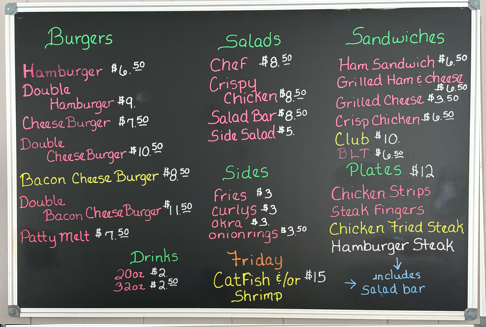 Burgers
Hamburger $6.50
Double
Hamburger $9.
CheeseBurger $7.50
Double
CheeseBurger $10.50
Bacon Cheese Burger $8.50
Double
Bacon CheeseBurger $11.50
Patty Melt $7.50
Drinks
20oz $2.
32oz $2.50
Salads
Chef $8.50
Crispy
Chicken $8.50
Salad Bar $8.50
Side Salad $5.
Sides
fries $3
curlys $3
okra $3
onionrings $3.50
Friday
CatFish &/or $15
Shrimp
Sandwiches
Ham Sandwich $6.50
Grilled Ham & cheese
$6.50
Grilled Cheese $3.50
Crisp Chicken $6.50
Club $10.
BLT $6.50
Plates $12
Chicken Strips
Steak Fingers
Chicken Fried Steak
Hamburger Steak
includes
Salad bar